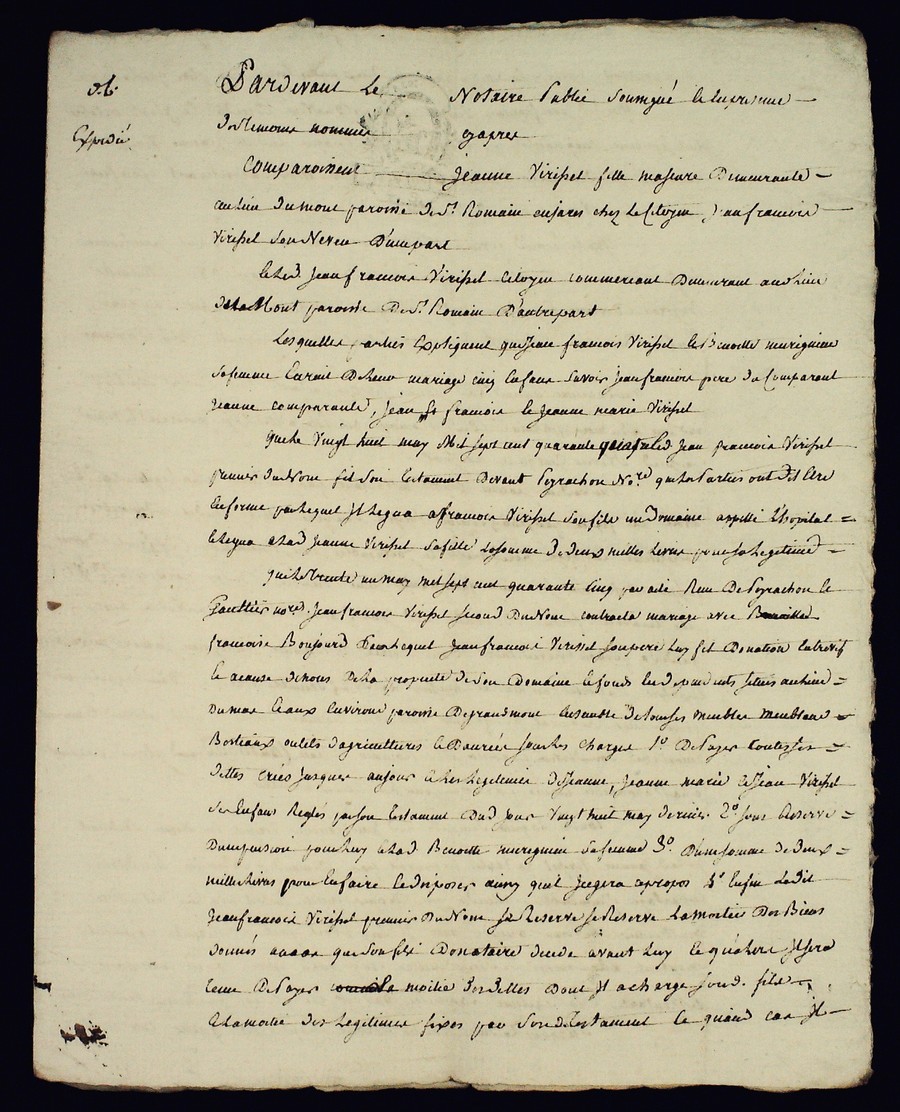 Expedié
Pardevant Le Notaire Public Soussigné et en presence
des temoins nommés cy apres
Comparoissent Jeanne Virissel fille majeure Demeurante
au lieu du mont paroisse de St. Romain en jares chez Le Citoyen Jean francois
Virissel son Neveu D'unepart
et led. Jean francois Virissel Citoyen commercant Demeurant aud. Lieu
de La Mont paroisse De St. Romain D'autrepart
Lesquelles parties Expliquent que Jean francois Virissel et Benoitte murigneux
sa femme Eurent De Leur mariage cinq Enfans Savoir Jean francois pere du Comparant
Jeanne comparante, Jean, francois et Jeanne marie Virissel
que le Vingt huit may Mil sept cent quarante quatre led. Jean francois Virissel
premier du Nom fit son testament Devant Peyrachon No.re que les Parties ont dit Etre
En forme par Lequel Il Legua a francois Virissel son fils un Domaine appellé L'hopital
et Legua a lad. Jeanne Virissel sa fille La somme De deux milles Livres pour sa Legitime
que Le trente un may mil sept cent quarante cinq par acte Recu De Peyrachon et
Gaultier no.res Jean francois Virissel second Du Nom contracta mariage avec
francoise Bonjour par Lequel Jean francois Virissel son pere Luy fit Donation Entrevif
et a cause de nous De La propriete De son Domaine et fonds En dependants situés au Lieu
Du mas et aux Environs paroisse De grandmont Ensemble De tous ses meubles meublans
Bestiaux outils d'agricultures et Danrées sous Les charges 1o De Payer toutes ses
dettes créés Jusques au jour et Les Legitimes De Jeanne, Jeanne marie et Jean Virissel
ses Enfans Reglés par son testament Dud. jour Vingt huit may dernier 2o sous La Reserve
D'une pension pour Luy et Lad. Benoitte murigneux sa femme 3o D'une somme de deux
mille Livres pour En faire et Disposer ainsy quil jugera apropos 4o Enfin Ledit
Jean francois Virissel premier Du Nom se Reserve La moitié Des Biens
donnés au cas que son fils Donataire decede avant Luy Il sera
tenu De Payer moitié des dettes Dont Il a chargé sond. fils
et La moitié Des Legitimes fixés par sond. testament Le quand cas Il